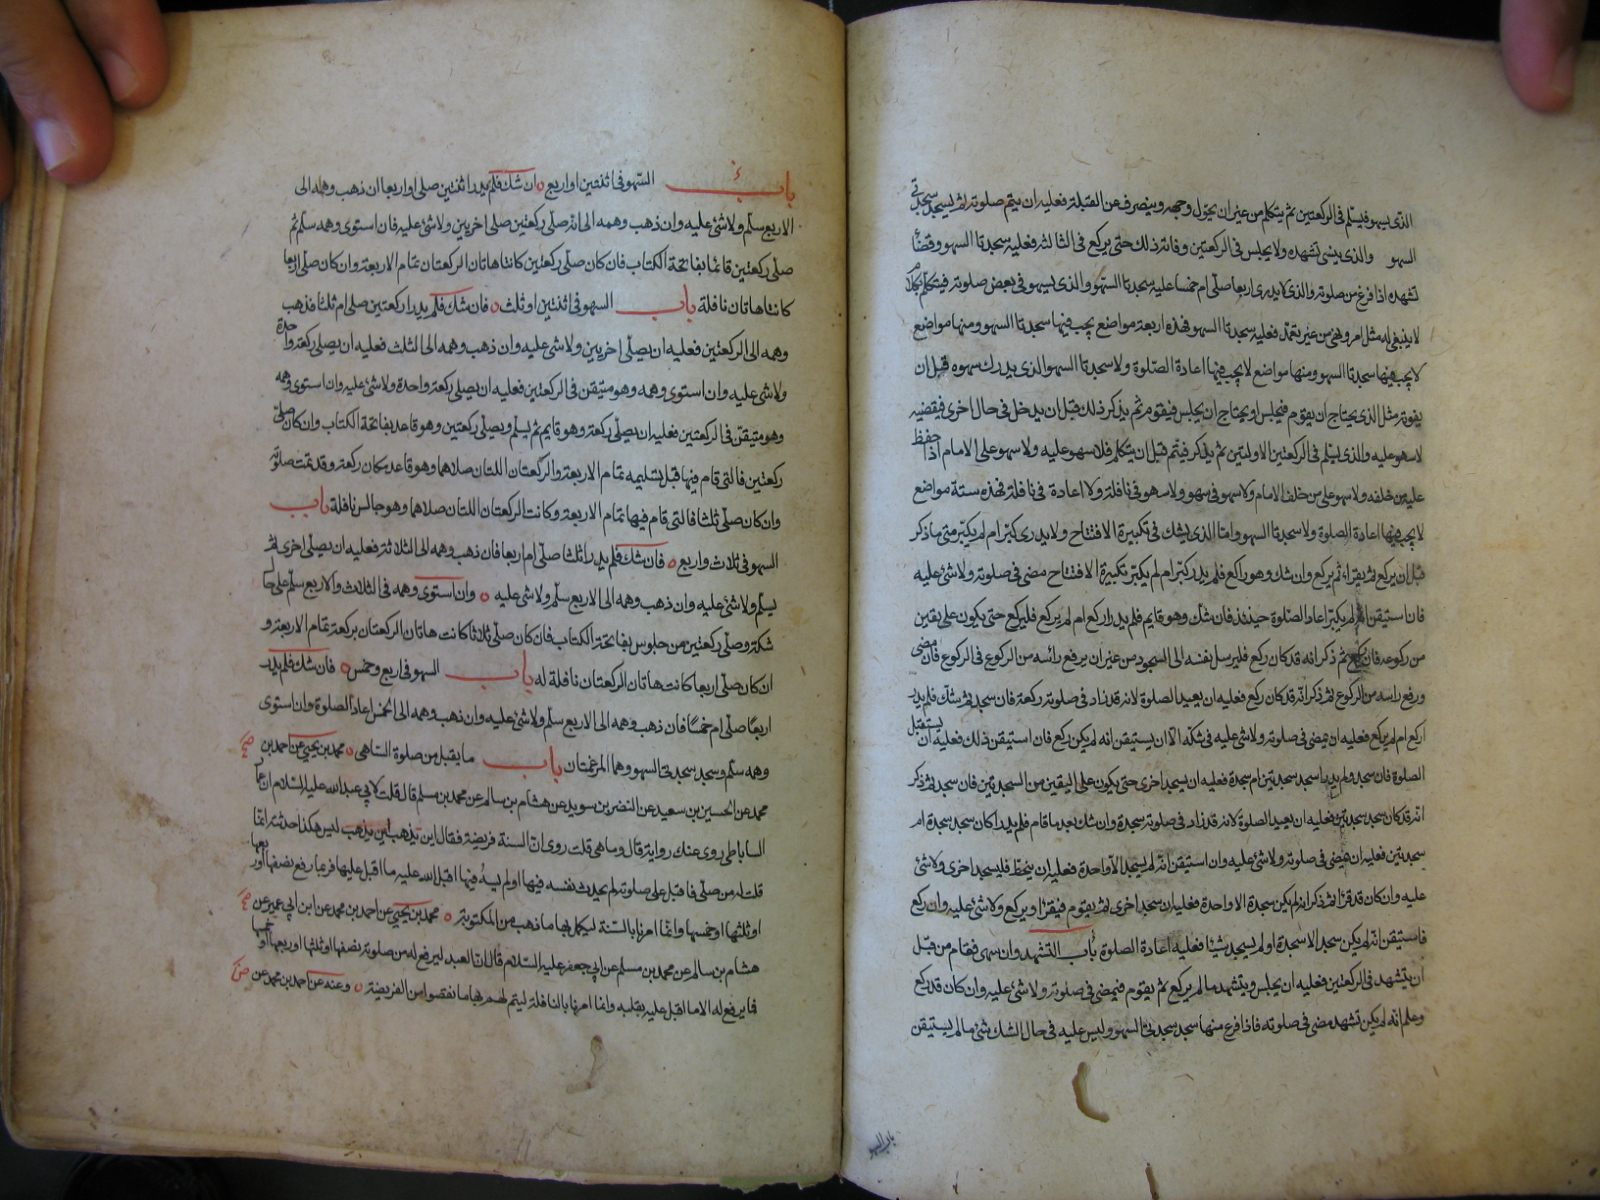 الذى يسهو فيسلم فى الركعتين ثم يتكلم من غير ان يحوّل وجهه وينصرف عن القبلة فعليه ان يتم صلوته ثم يسجد سجدتى
السهو والذى ينسى تشهده ولا يجلس فى الركعتين وفاته ذلك حتى يركع فى الثالثة فعليه سجدتا السهو وقضاء
تشهده اذا فرغ من صلوته والذى لا يدرى اربعا صلّى ام خمسا عليه سجدتا السهو والذى يسهو فى بعض صلوته فيتكلم بكلام
لا ينبغى له مثل امر ونهى من غير تعمّد فعليه سجدتا السهو فهذه اربعة مواضع يجب فيها سجدتا السهو ومنها مواضع
لا يجب فيها سجدتا السهو ومنها مواضع لا يجب فيها اعادة الصّلوة ولا سجدتا السهو الذى يدرك سهوه قبل ان
يفوته مثل الذى يحتاج ان يقوم فيجلس او يحتاج ان يجلس فيقوم ثم يذكر ذلك قبل ان يدخل فى حال اخرى فيقضيه
لا سهو عليه والذى يسلّم فى الركعتين الاولتين ثم يذكر فيتم قبل ان يتكلم فلا سهو عليه ولا سهو على الامام اذا حفظ
عليه من خلفه ولا سهو على من خلف الامام ولا سهو فى سهو ولا سهو فى نافلة ولا اعادة فى نافلة فهذه ستة مواضع
لا يجب فيها اعادة الصلوة ولا سجدتا السهو وامّا الذى يشك فى تكبيرة الافتتاح ولا يدرى كبّر ام لم يكبّر متى ما ذكر
قبل ان يركع ثم يقرأ ثم يركع وان شك وهو راكع فلم يدر كبّر ام لم يكبّر تكبيرة الافتتاح مضى فى صلوته ولا شئ عليه
فان استيقن انّه لم يكبّر اعاد الصّلوة حينئذ فان شك وهو قايم فلم يدر اركع ام لم يركع فليركع حتى يكون على يقين
من ركوعه فان ركع ثم ذكر انه قد كان ركع فليرسل نفسه الى السجود من غير ان يرفع رأسه من الركوع فى الركوع فان مضى
ورفع راسه من الركوع ثم ذكر انّه قد كان ركع فعليه ان يعيد الصلوة لانه قد زاد فى صلوته ركعة فان سجد ثم شكّ فلم يدر
اركع ام لم يركع فعليه ان يمضى فى صلوته ولا شئ عليه فى شكّه الّا ان يستيقن انه لم يكن ركع فان استيقن ذلك فعليه ان يستقبل
الصلوة فان سجد ولم يدر اسجد سجدتين ام سجدة فعليه ان يسجد اخرى حتى يكون على اليقين من السجدتين فان سجد ثم ذكر
انّه قد كان سجد سجدتين فعليه ان يعيد الصلوة لانه قد زاد فى صلوته سجدة وان شك بعد ما قام فلم يدر اكان سجد سجدة ام
سجدتين فعليه ان يمضى فى صلوته ولا شئ عليه وان استيقن انّه لم يسجد الّا واحدة فعليه ان ينحطّ فليسجد اخرى ولا شئ
عليه وان كان قد قرأ ثم ذكر انه لم يكن سجد الا واحدة فعليه ان سجد اخرى ثم يقوم فيقرأ ويركع ولا شئ عليه وان ركع
فاستيقن انّه لم يكن سجد الا سجدة او لم يسجد شيئا فعليه اعادة الصلوة باب التشهد وان سهى فقام من قبل
ان يتشهد فى الركعتين فعليه ان يجلس ويتشهد ما لم يركع ثم يقوم فيمضى فى صلوته ولا شئ عليه وان كان قد ركع
وعلم انّه لم يكن تشهد مضى فى صلوته فاذا فرغ منها سجد سجدتى السهو وليس عليه فى حال الشك شئ ما لم يستيقن
باب السهو
باب السّهو فى اثنتين او اربع ان شك فلم يدر اثنتين صلى او اربعا ان ذهب وهمه الى
الاربع سلّم ولا شئ عليه وان ذهب وهمه الى انه صلّى ركعتين صلى اخريين ولا شئ عليه فان استوى وهمه سلّم ثم
صلّى ركعتين قائما بفاتحة الكتاب فان كان صلّى ركعتين كانتا هاتان الركعتان تمام الاربعة وان كان صلّى اربعا
كانتا هاتان نافلة باب السهو فى اثنتين او ثلث فان شك فلم يدر اركعتين صلى ام ثلثا فذهب
وهمه الى الركعتين فعليه ان يصلّى اخريين ولا شئ عليه وان ذهب وهمه الى الثلث فعليه ان يصلى ركعة واحدة
ولا شئ عليه وان استوى وهمه وهو متيقن فى الركعتين فعليه ان يصلى ركعة واحدة ولا شئ عليه وان استوى وهمه
وهو متيقّن فى الركعتين فعليه ان يصلّى ركعة وهو قايم ثم يسلّم ويصلّى ركعتين وهو قاعد بفاتحة الكتاب وان كان صلّى
ركعتين فالتى قام فيها قبل تسليمه تمام الاربعة والركعتان اللتان صلاهما وهو قاعد مكان ركعة وقد تمت صلوته
وان كان صلّى ثلثا فالتى قام فيها تمام الاربعة وكانت الركعتان اللتان صلاهما وهو جالس نافلة باب
السهو فى ثلاث واربع فان شك فلم يدر اثلثا صلّى ام اربعا فان ذهب وهمه الى الثلاثة فعليه ان يصلّى اخرى ثم
يسلّم ولا شئ عليه وان ذهب وهمه الى الاربع سلّم ولا شئ عليه وان استوى وهمه فى الثلاث والاربع سلّم على حال
شكه وصلّى ركعتين من جلوس بفاتحة الكتاب فان كان صلّى ثلاثا كانت هاتان الركعتان بركعة تمام الاربعة و
ان كان صلّى اربعا كانت هاتان الركعتان نافلة له باب السهو فى اربع وخمس فان شك فلم يدر
اربعا صلّى ام خمسا فان ذهب وهمه الى الاربع سلّم ولا شئ عليه وان ذهب وهمه الى الخمس اعاد الصلوة وان استوى
وهمه سلّم وسجد سجدتى السهو وهما المرغمتان باب ما يقبل من صلوة السّاهى محمد بن يحيى عن احمد بن
محمد عن الحسين بن سعيد عن النضر بن سويد عن هشام بن سالم عن محمد بن مسلم قال قلت لابى عبد الله عليه السّلام ان عمّار
الساباطى روى عنك رواية قال وما هى قلت روى انّ السنة فريضة فقال اين يذهب اين يذهب ليس هكذا حدثته انّما
قلت له من صلّى فاقبل على صلوته لم يحدث نفسه فيها او لم يسهُ فيها اقبل الله عليه ما اقبل عليها فربما رفع نصفها او ربعها
او ثلثها او خمسها وانّما امرنا بالسّنة ليكمل بها ما ذهب من المكتوبة محمد بن يحيى عن احمد بن محمد عن ابن ابى عمير عن
هشام بن سالم عن محمد بن مسلم عن ابى جعفر عليه السّلام قال انّ العبد ليرفع له من صلوته نصفها او ثلثها او ربعها او خمسها
فما يرفع له الا ما اقبل عليه بقلبه وانّما امرنا بالنافلة ليتم لهم بها ما نقصوا من الفريضة وعنه عن احمد بن محمد عن